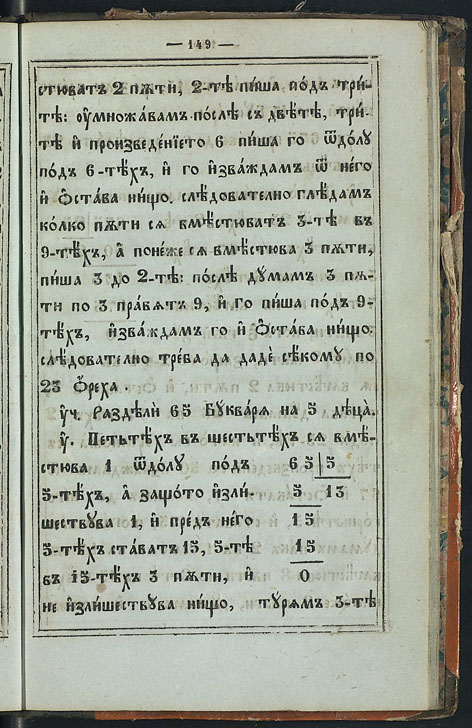 — 149 —
стюватъ 2 пѫти, 2-тѣ пи́ша по́дъ три́-
тѣ: ѹ҆множа́вамъ по́слѣ съ две́тѣ, три́-
тѣ и҆ произведе́нїето 6 пи́ша го ѿдо́лу
по́дъ 6-тѣ́хъ, и҆ го и҆зва́ждамъ ѿ не́го
и҆ ѻ҆ста́ва ни́що. слѣ́дователно глѣ́дамъ
ко́лко пѫ́ти ся вмѣ́стюватъ 3-тѣ въ
9-тѣ́хъ, а҆ поне́же ся вмѣ́стюва 3 пѫ́ти,
пи́ша 3 до 2-тѣ: по́слѣ ду́мамъ 3 пѫ́-
ти по 3 пра́вятъ 9, и҆ го пи́ша по́дъ 9-
тѣ́хъ, и҆зва́ждамъ го и҆ ѻ҆ста́ва ни́що.
слѣ́дователно тре́ба да даде́ сѣ́кому по
23 ѻ҆́реха.
ѹ҆ч. Раздели́ 65 Буква́ря на 5 деца̀.
ѹ҆. Петътѣ́хъ въ шестьтѣ́хъ ся вмѣ́-
стюва 1 ѿдо́лу по́дъ 65 | 5
5-тѣ́хъ, а҆ защо́то и҆зли́- 5 13
шествува 1, и҆ пре́дъ не́го 15
5-тѣ́хъ ста́ватъ 15, 5-тѣ 15
въ 15-тѣ́хъ 3 пѫ́ти, и҆ 0
не и҆зли́шествува ни́що, ту́рямъ 3-тѣ